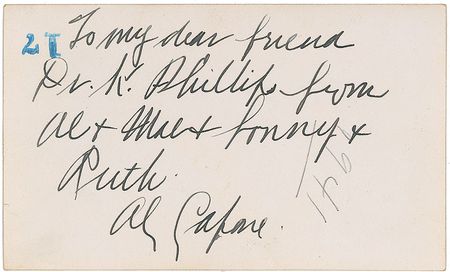 21 To my dear friend
Dr. K. Phillips from
Al & Mae & Sonny &
Ruth.
Al Capone.
1941